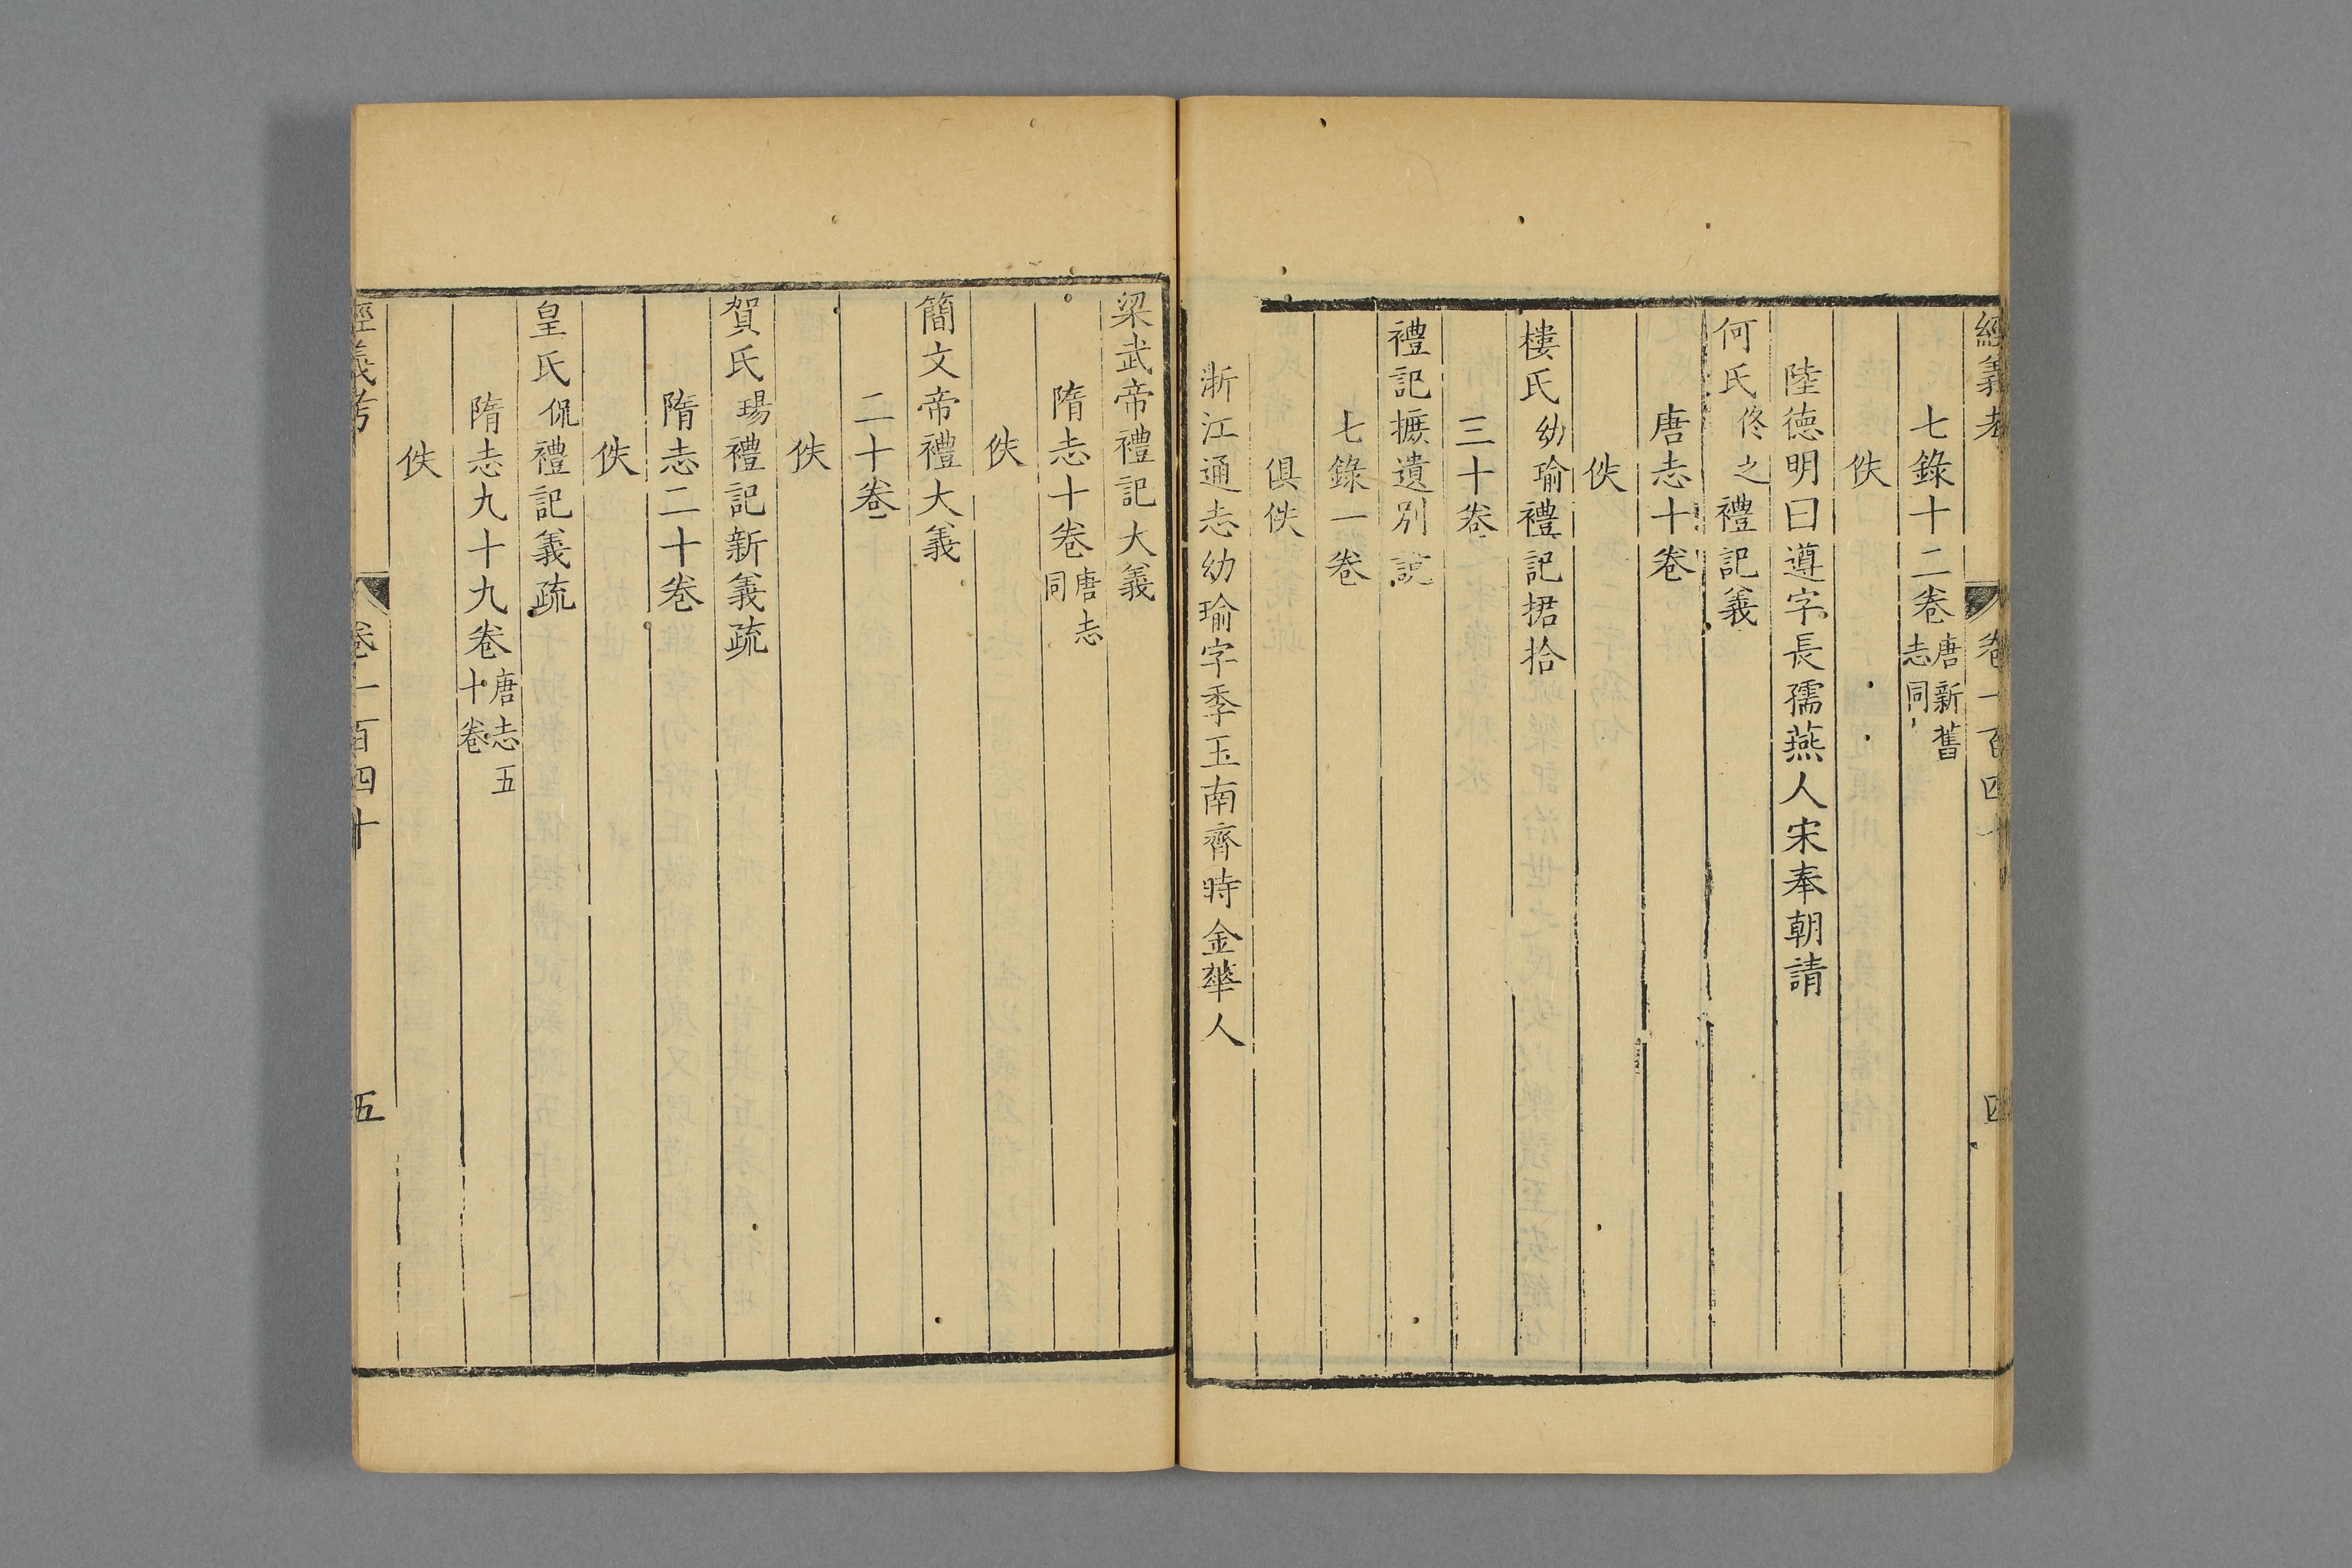 經義考 卷一百四十 四
七錄十二卷唐新舊志同
佚
陸德明曰遵字長孺燕人宋奉朝請
何氏佟之禮記義
唐志十卷
佚
樓氏幼瑜禮記捃拾
三十卷
禮記摭遺別說
七錄一卷
俱佚
浙江通志幼瑜字季玉南齊時金華人
梁武帝禮記大義
隋志十卷唐志同
佚
簡文帝禮大義
二十卷
佚
賀氏瑒禮記新義疏
隋志二十卷
佚
皇氏侃禮記義疏
隋志九十九卷唐志五十卷
佚
經義考 卷一百四十 五